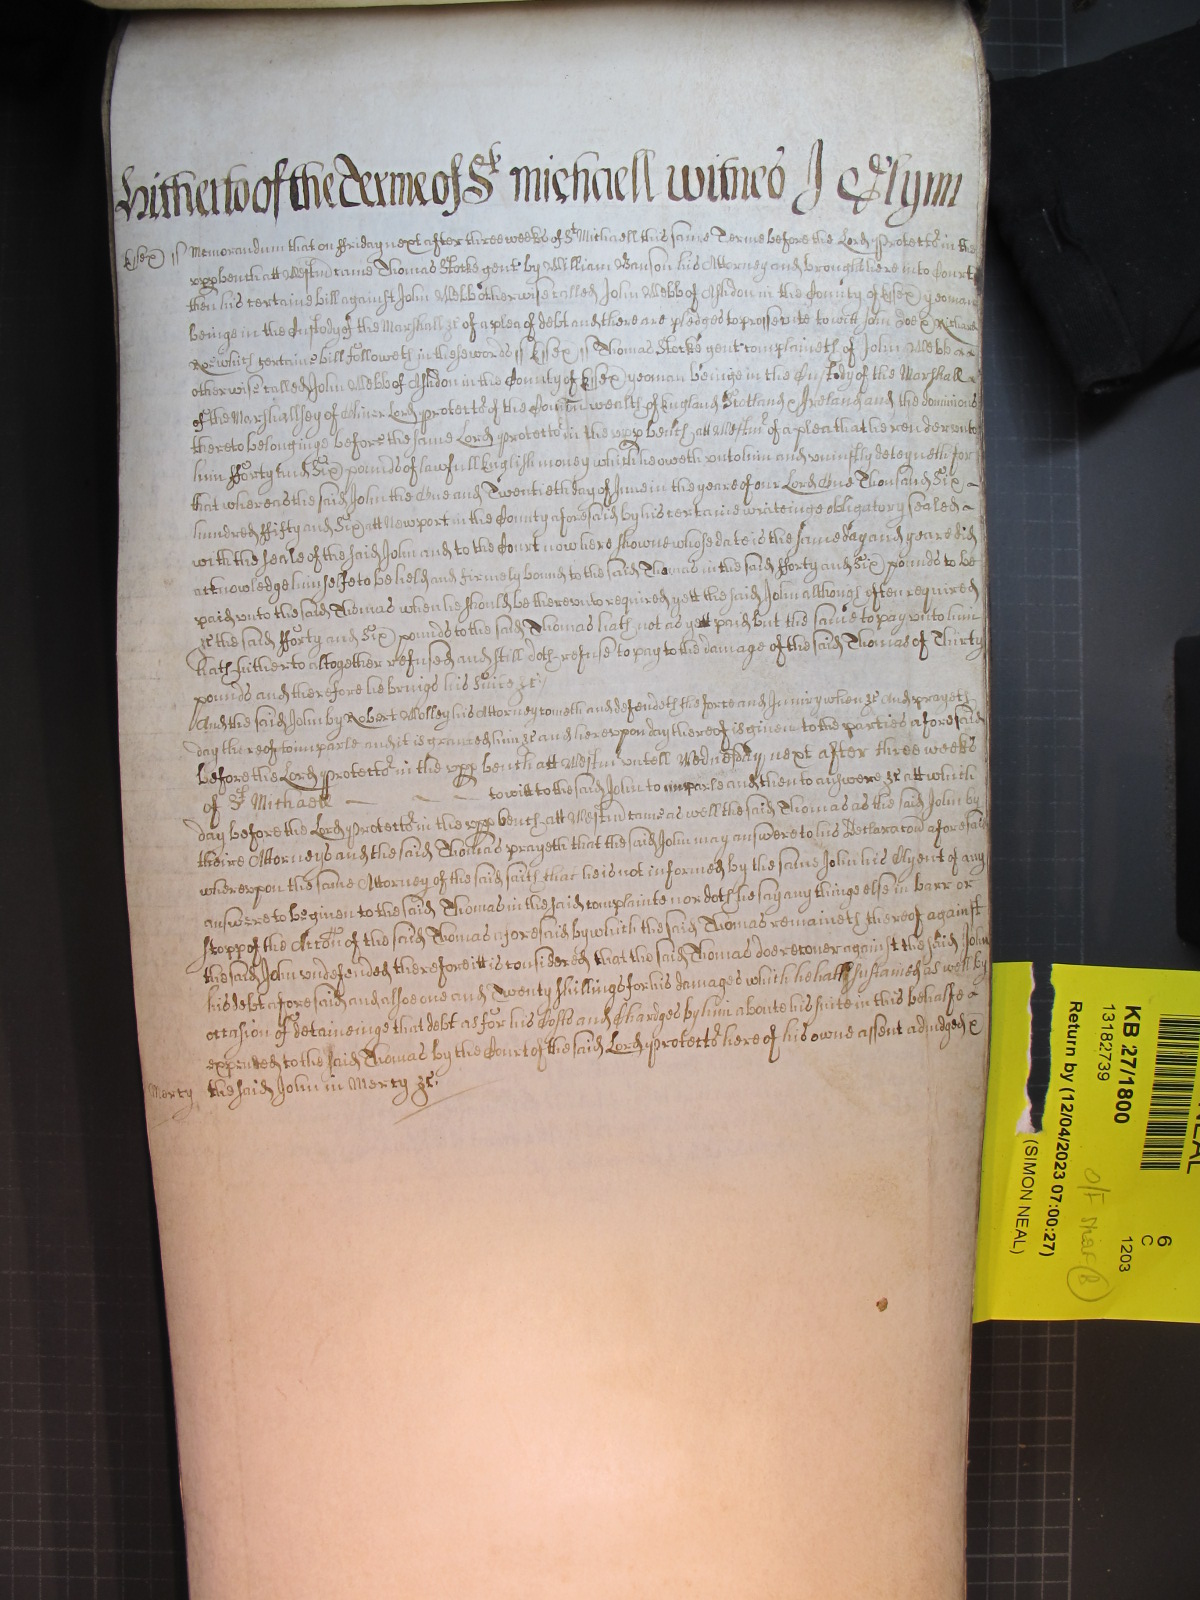 Hitherto of the Terme of St michaell witnes J Glynn
Essex ss Memorandum that on ffriday next after three weeks of St Michaell this same Terme before the Lord Protector in the
upp bench att Westm came Thomas Stocke gent by William Banson his Attorney and brought here into Court
then his certaine bill against John Webb otherwise called John Webb of Ashdon in the County of Essex yeoman
beinge in the Custody of the Marshall &c of a plea of debt and there are pledges to prossecute to witt John Doe & Richard
Roe which certaine bill followeth in these words ss Essex ss Thomas Stocke gent complaineth of John Webb
otherwise called John Webb of Ashdon in the County of Essex yeoman beinge in the Custody of the Marshall
of the Marshallsey of Oliver Lord Protector of the Common wealth of England Scotland & Ireland and the dominions
thereto belonginge before the same Lord Protector in the upp bench att Westmr of a plea that he render unto
him fforty and Six pounds of lawfull English money which he oweth unto him and uniustly deteyneth for
that whereas the said John the One and Twentieth day of June in the yeare of our Lord One Thousand Six
hundred ffifty and Six att Newport in the County aforesaid by his certaine writeinge obligatory sealed
with the seale of the said John and to the Court now here showne whose date is the same day and yeare did
acknowledge himselfe to be held and firmely bound to the said Thomas in the said fforty and Six pounds to be
paid unto the said Thomas when he should be thereunto required yett the said John although often required
&c the said fforty and Six pounds to the said Thomas hath not as yett paid but the same to pay unto him
hath hitherto altogether refused and still doth refuse to pay to the damage of the said Thomas of Thirty
pounds and therefore he brings his Suite &c
And the said John by Robert Molley his Attorney cometh and defendeth the force and Iniury when &c And prayeth
day thereof to imparle and it is granted him &c and hereupon day thereof is given to the parties aforesaid
before the Lord Protector in the upp bench att Westm untell Wednesday next after three weeks
of St Michaell to witt to the said John to imparle and then to answere &c att which
day before the Lord Protector in the upp bench att Westm came as well the said Thomas as the said John by
theire Attorneys and the said Thomas prayeth that the said John may answere to his Declaracon aforesaid
whereupon the same Attorney of the said saith that he is not informed by the same John his Clyent of any
answere to be given to the said Thomas in the said complainte nor doth he say any thinge else in barr or
stopp of the Accon of the said Thomas aforesaid by which the said Thomas remaineth thereof against
the said John undefended therefore itt is considered that the said Thomas doe recover against the said John
his debt aforesaid and alsoe one and Twenty shillings for his damages which he hath sustained as well by
occasion of detaineinge that debt as for his Costs and Chardges by him aboute his suite in this behalfe
expended to the said Thomas by the Court of the said Lord Protector here of his owne assent adiudged &
Mercy the said John in Mercy &c.
NEAL
KB 27/1800
13182739
Return by (12/04/2023 07:00:27)
(SIMON NEAL)
6
C
1203